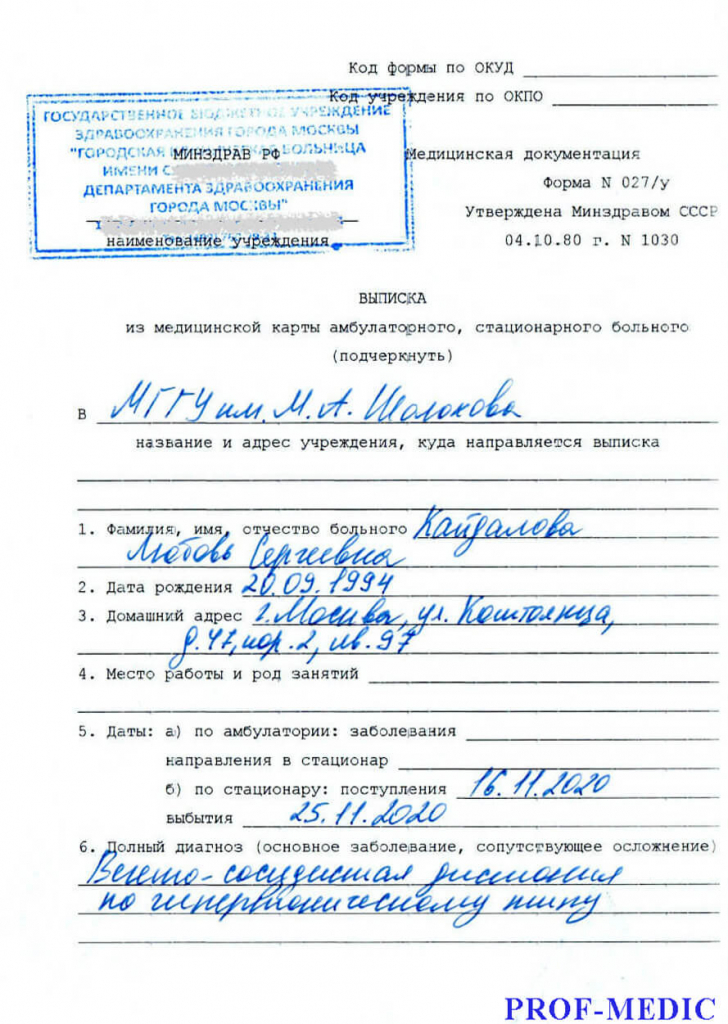 Код формы по ОКУД
Код учреждения по ОКПО
ГОСУДАРСТВЕННОЕ БЮДЖЕТНОЕ УЧРЕЖДЕНИЕ
ЗДРАВООХРАНЕНИЯ ГОРОДА МОСКВЫ
"ГОРОДСКАЯ БОЛЬНИЦА
МИНЗДРАВ РФ
ИМЕНИ С
ДЕПАРТАМЕНТА ЗДРАВООХРАНЕНИЯ
ГОРОДА МОСКВЫ"
наименование учреждения
Медицинская документация
Форма N 027/у
Утверждена Минздравом СССР
04.10.80 г. N 1030
ВЫПИСКА
из медицинской карты амбулаторного, стационарного больного
(подчеркнуть)
в МГГУ им. М. А. Шолохова
название и адрес учреждения, куда направляется выписка
1. Фамилия, имя, отчество больного Кайдалова
Любовь Сергеевна
2. Дата рождения 20.09.1994
3. Домашний адрес г. Москва, ул. Коштоянца,
д. 47, кор. 2, кв. 97
4. Место работы и род занятий
5. Даты: а) по амбулатории: заболевания
направления в стационар
б) по стационару: поступления 16.11.2020
выбытия 25.11.2020
6. Полный диагноз (основное заболевание, сопутствующее осложнение)
Вегето-сосудистая дистония
по гипертоническому типу
PROF-MEDIC